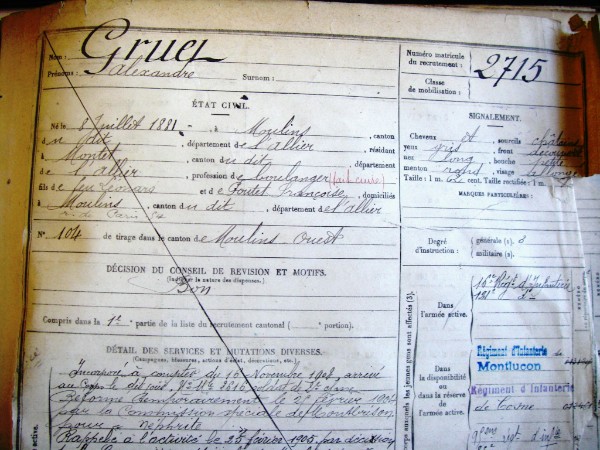 Nom : Gruel
Prénoms : Alexandre Surnom :
Numéro matricule du recrutement : 2715
Classe de mobilisation :
ÉTAT CIVIL.
Né le 8 Juillet 1881, à Moulins, canton
du dit, département de l'Allier, résidant
à Montet, canton du dit, département
de l'Allier, profession de boulanger
fils de feu Léonard et de Goutet Françoise, domiciliés
à Moulins, canton du dit, département de l'Allier
r. de Paris
N° 104 de tirage dans le canton de Moulins Ouest
SIGNALEMENT.
Cheveux et sourcils châtains
yeux gris, front découvert
nez long, bouche
menton rond, visage
Taille : 1 m. cent. Taille rectifiée : 1 m.
MARQUES PARTICULIÈRES :
Degré d'instruction : générale (1). 3
militaire (2).
DÉCISION DU CONSEIL DE REVISION ET MOTIFS.
(Indiquer la nature des dispenses.)
Bon
Compris dans la 1re partie de la liste du recrutement cantonal ( portion)
DÉTAIL DES SERVICES ET MUTATIONS DIVERSES.
(Campagnes, blessures, actions d'éclat, décorations, etc.)
Incorporé à compter du 16 Novembre arrivé
au Corps le dit jour, Nº Mle soldat de 2e classe
Réformé temporairement le 2 février
par la Commission spéciale de Montbrison
pour « Néphrite »
Rappelé à l'activité le 25 février 1905 par décision
Dans l'armée active.
16e Régt d'Infanterie
121e do
Dans la disponibilité ou dans la réserve de l'armée active.
Régiment d'Infanterie de
Montluçon
Régiment d'Infanterie
de Cosne